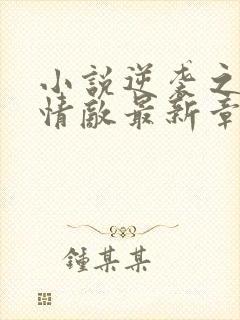 小說逆袭之
情敵最新章
鍾某某